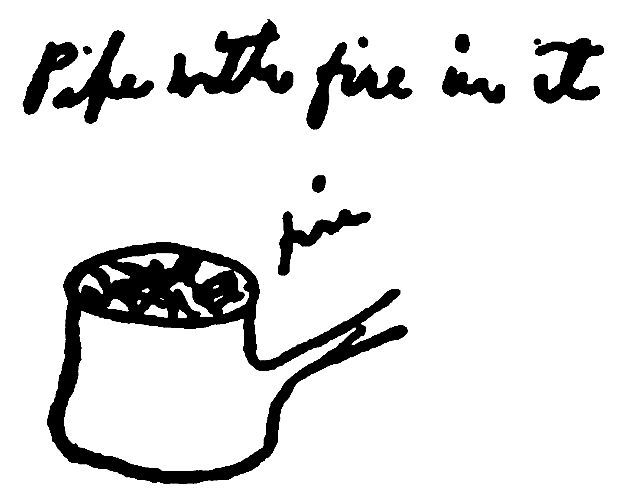 Pipe with fire in it
fire